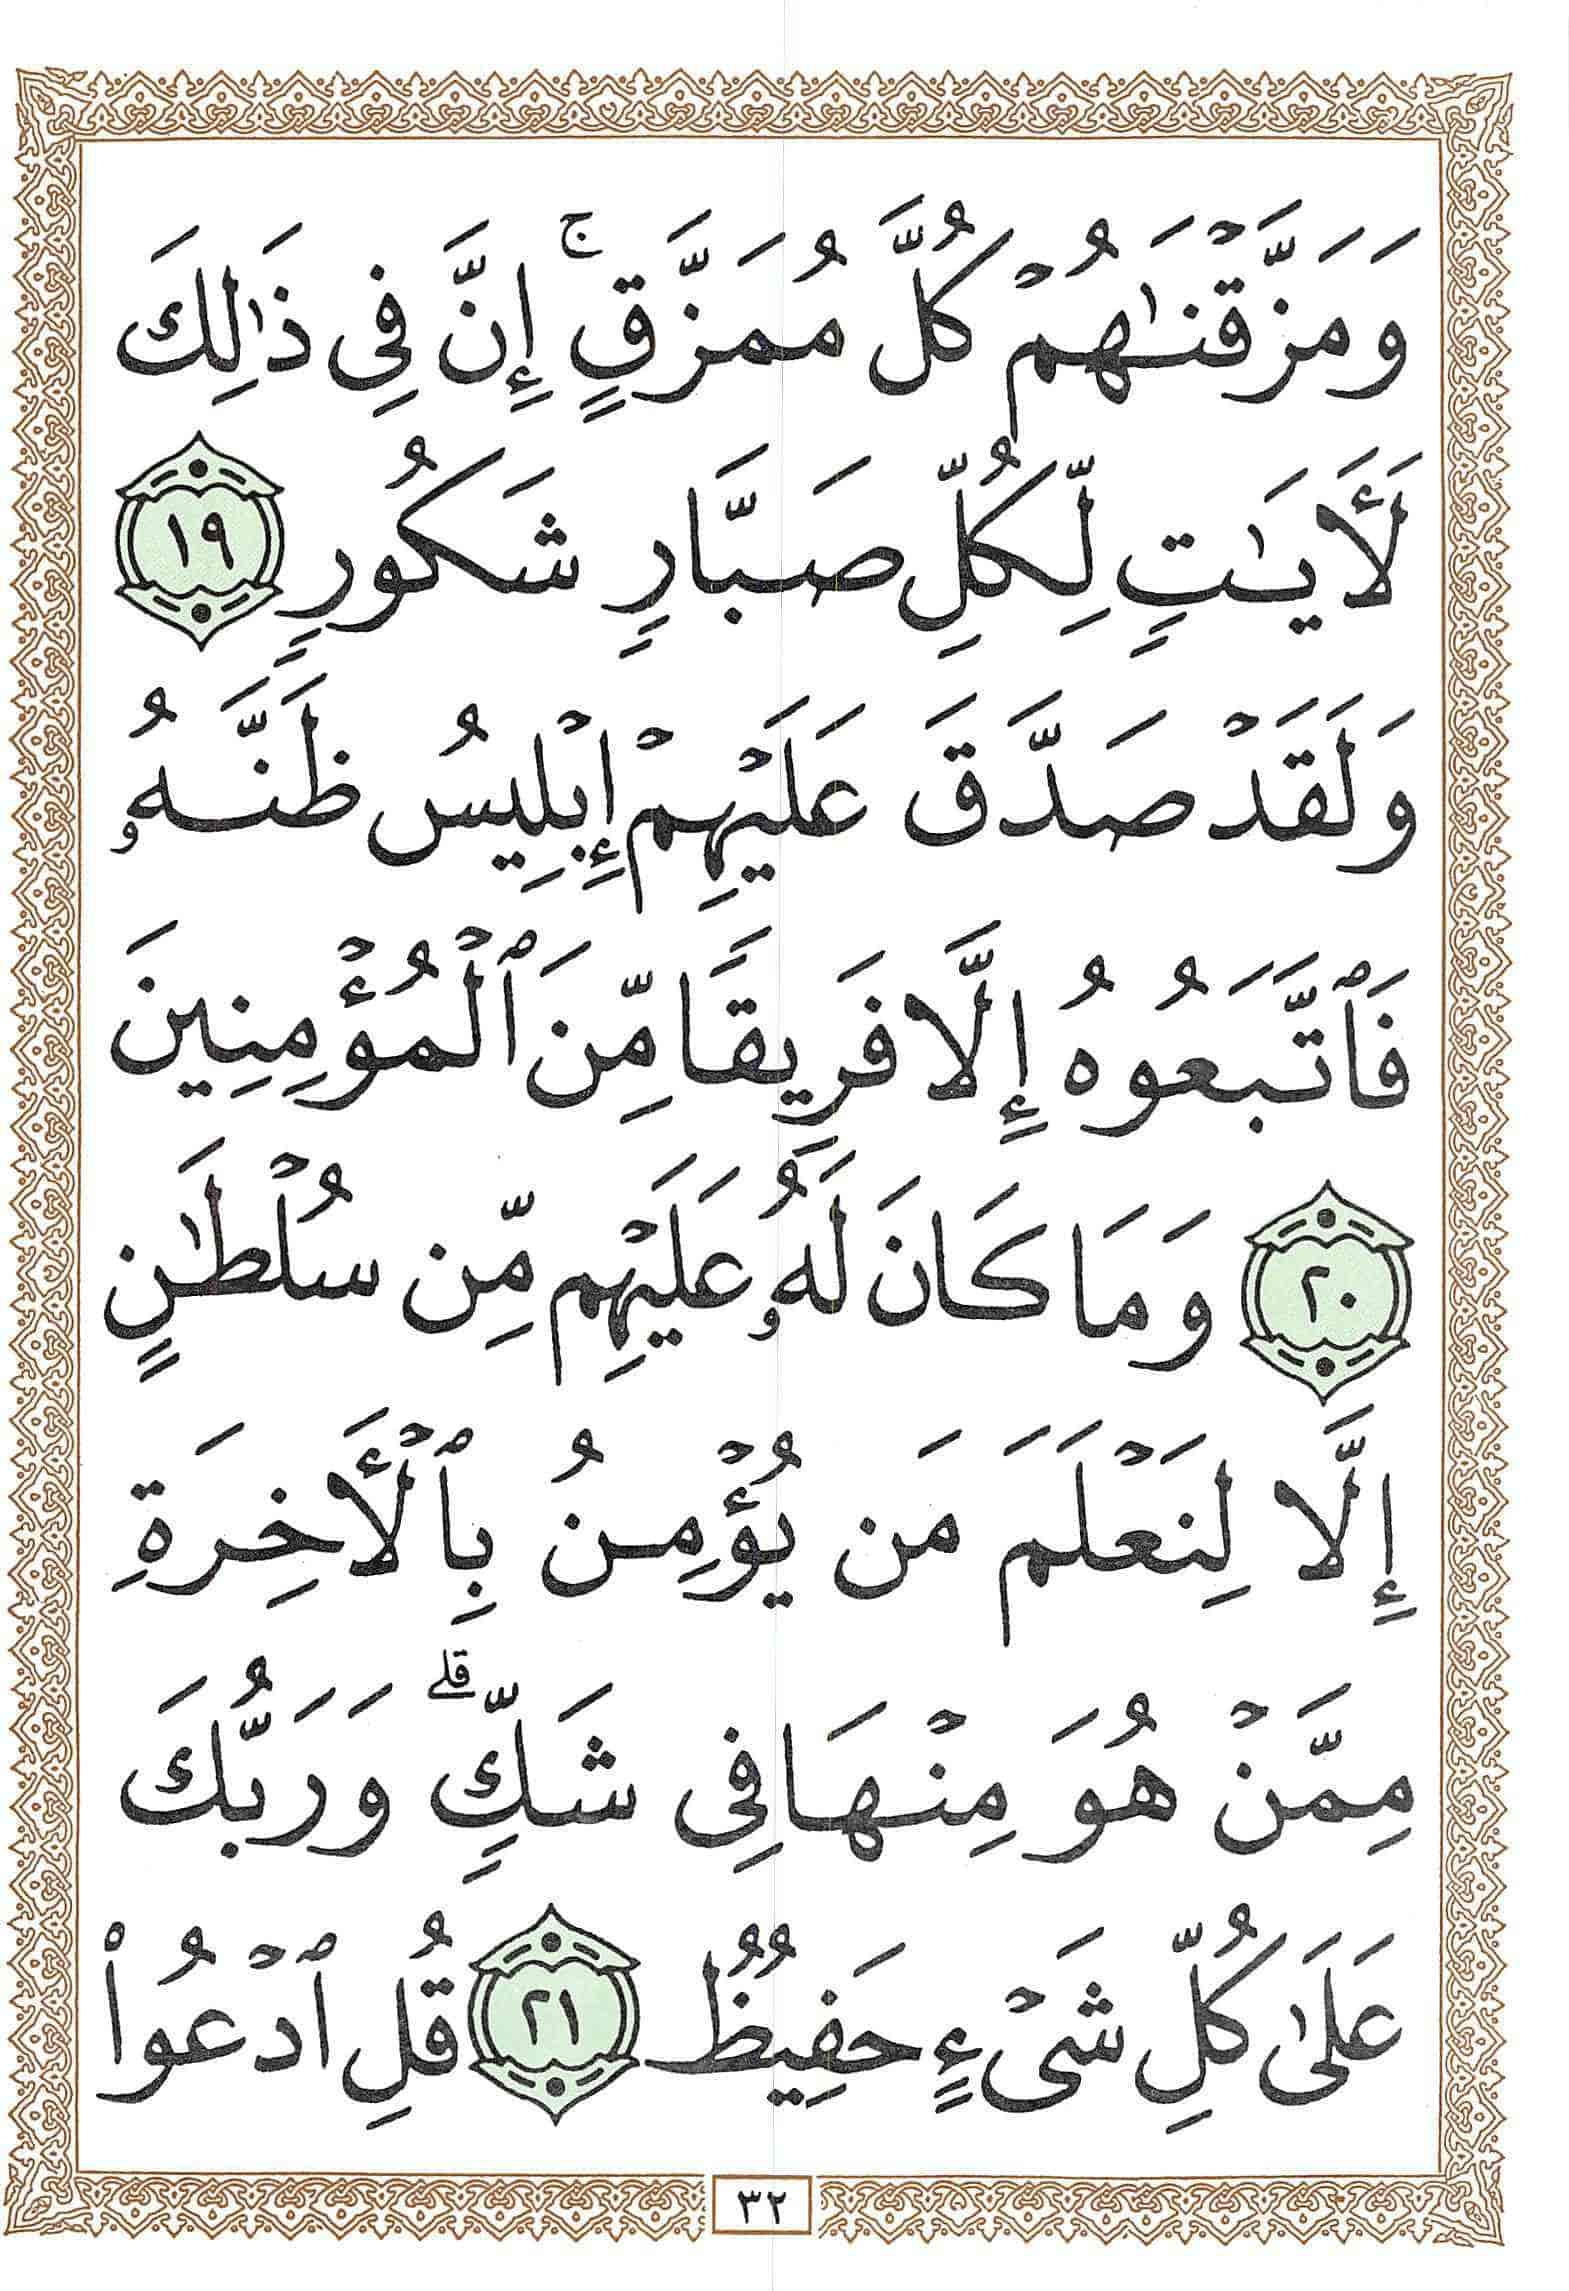 وَمَزَّقْنَٰهُمْ كُلَّ مُمَزَّقٍ ۚ إِنَّ فِى ذَٰلِكَ
لَأَيَٰتٍ لِّكُلِّ صَبَّارٍ شَكُورٍ ١٩
وَلَقَدْ صَدَّقَ عَلَيْهِمْ إِبْلِيسُ ظَنَّهُۥ
فَٱتَّبَعُوهُ إِلَّا فَرِيقًا مِّنَ ٱلْمُؤْمِنِينَ
٢٠ وَمَا كَانَ لَهُۥ عَلَيْهِم مِّن سُلْطَٰنٍ
إِلَّا لِنَعْلَمَ مَن يُؤْمِنُ بِٱلْأَخِرَةِ
مِمَّنْ هُوَ مِنْهَا فِى شَكٍّ ۗ وَرَبُّكَ
عَلَىٰ كُلِّ شَىْءٍ حَفِيظٌ ٢١ قُلِ ٱدْعُوا۟
٣٢